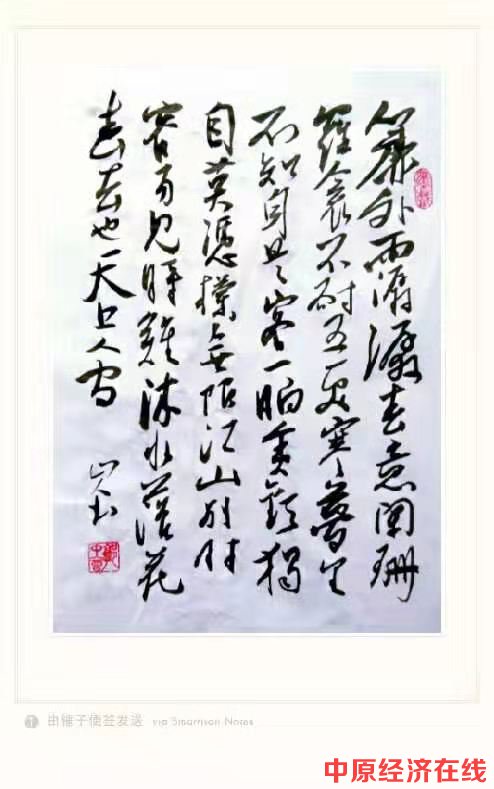 簾外雨潺潺春意闌珊
羅衾不耐五更寒夢里
不知身是客一晌貪歡獨
自莫憑欄無限江山別時
容易見時難流水落花
春去也天上人間
由锤子便签发送 via Smartisan Notes
中原经济在线